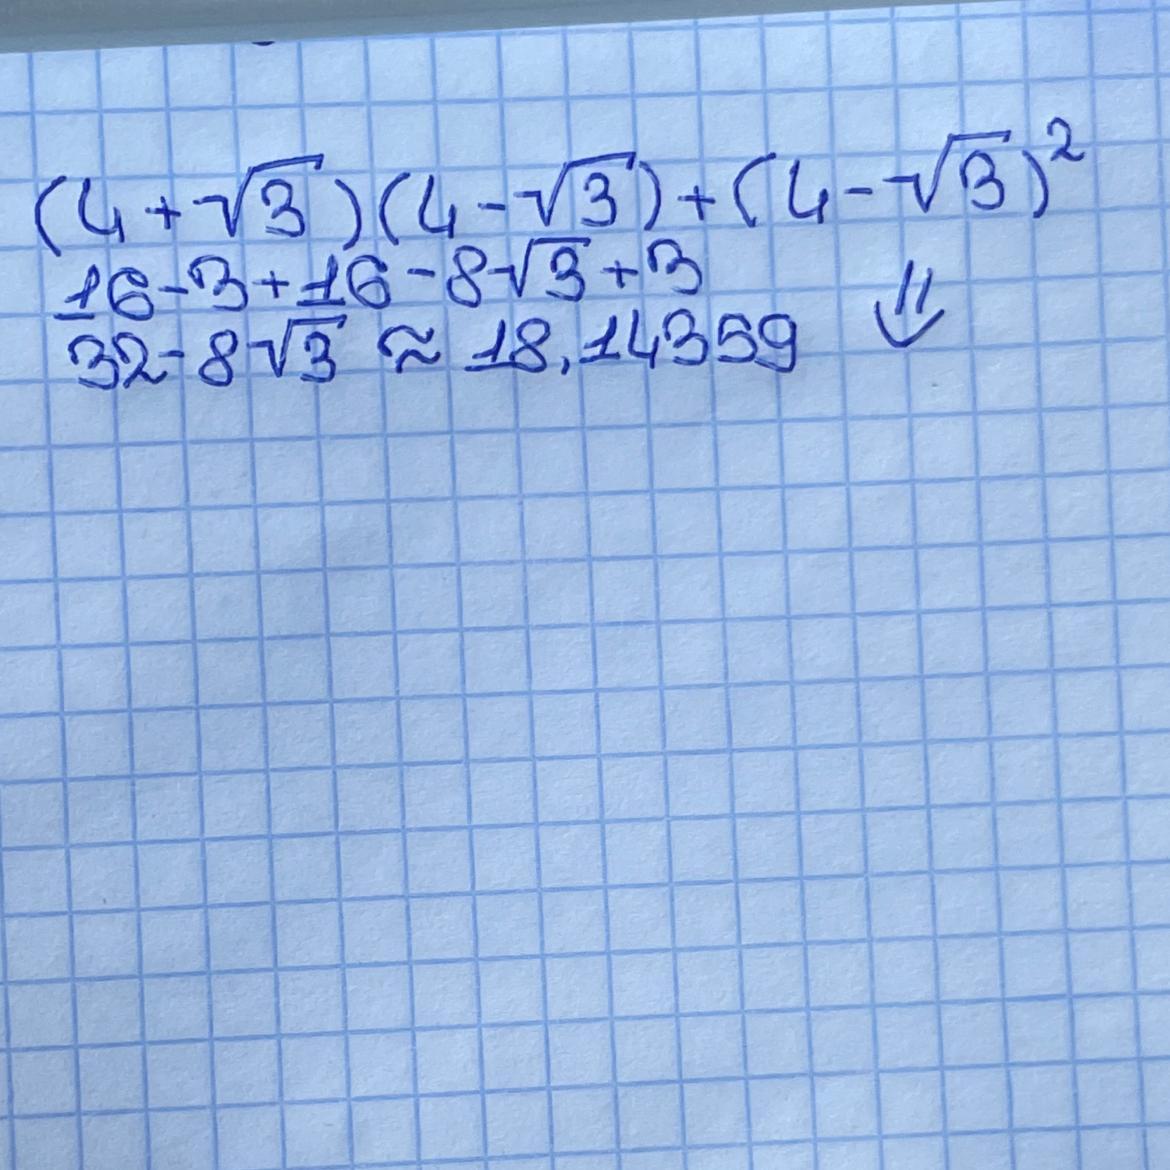 (4+√3)(4-√3)+(4-√3)²
16-3+16-8√3+3 ⇓
32-8√3 ≈ 18,14359